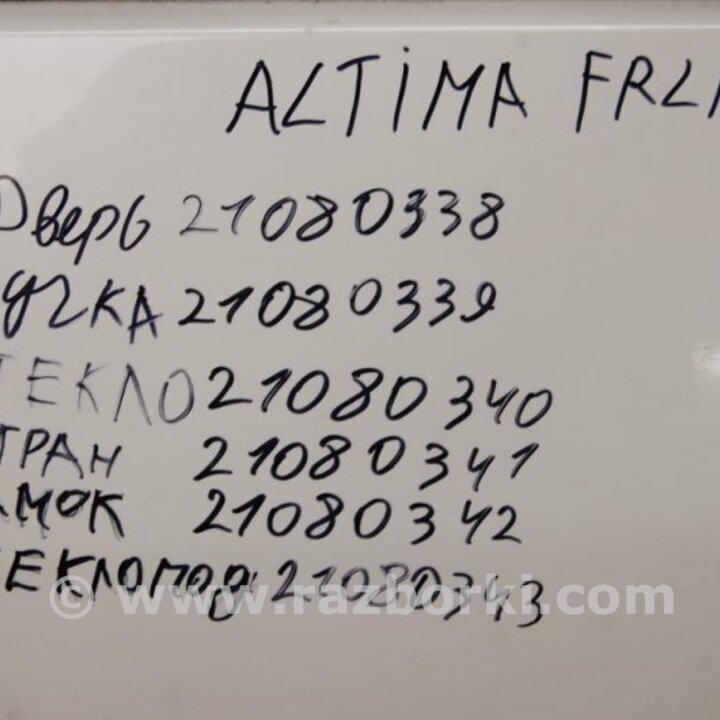 ALTIMA FRLH
Дверь 21080338
учка 21080339
текло 21080340
тран 21080341
амок 21080342
теклопод 21080343
© www.razborki.com